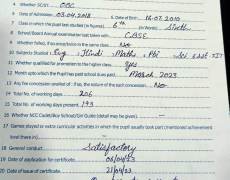 Whether SC/ST OBC
4 Date of Admission 03.04.2018 5 Date of Birth 18.07.2010
7 Class in which the pupil last studied (in figures) 6th (in Words) Sixth
8 School/Board Annual examination last taken with CBSE
9 Whether failed, if so once/twice in the same class No
10 Subjects Studied Eng, Hindi, Maths, Pbi, Sci, S.Sst, IT
11 Whether qualified for promotion to the higher class Yes
12 Month upto which the pupil has paid school dues March, 2023
13 Any fee concession availed of: if so, the nature of such concession No
14 Total No. of working days 206
15 Total No. of working days present 193
16 Whether NCC Cadet/Boy Scout/Girl Guide (detail may be given)
17 Games played or extra curricular activities in which the pupil usually took part (mentioned achievement
level there in)
18 General conduct Satisfactory
19 Date of application for certificate 05/04/23
20 Date of issue of certificate 21/04/23